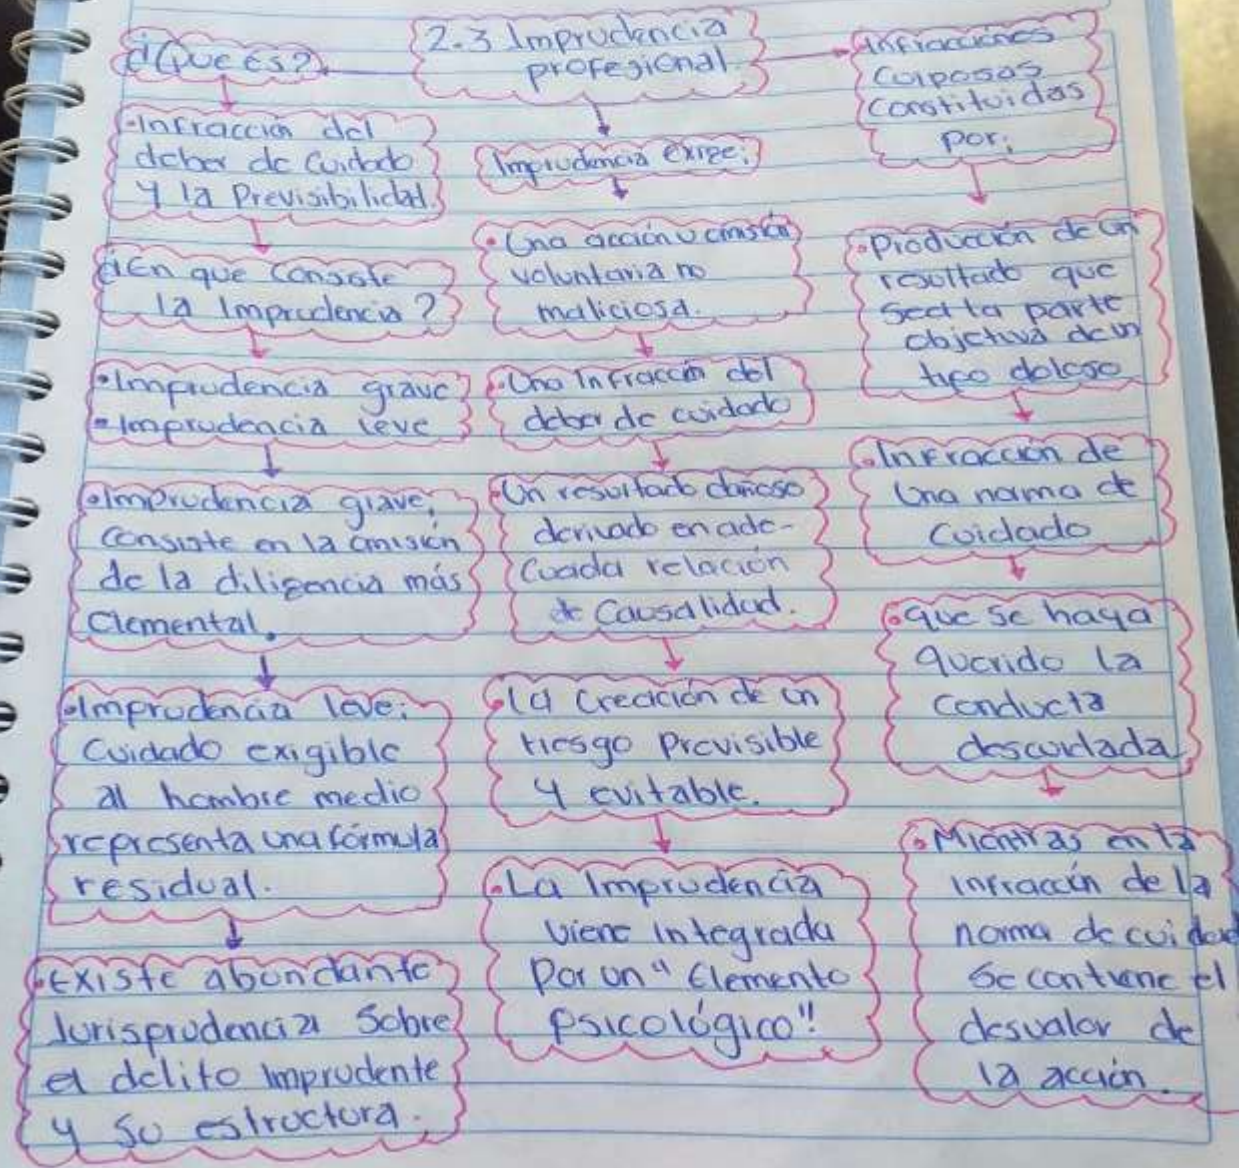 2.3 Imprudencia
profesional
¿Que es?
•Infracción del
deber de Cuidado
y la Previsibilidad
¿En que Consiste
la Imprudencia?
•Imprudencia grave
•Imprudencia leve
•Imprudencia grave:
Consiste en la omisión
de la diligencia más
elemental.
•Imprudencia leve:
Cuidado exigible
al hombre medio
representa una fórmula
residual.
•Existe abundante
Jurisprudencia Sobre
el delito Imprudente
y su estructura.
Imprudencia exige:
•Una acción u omisión
voluntaria no
maliciosa.
•Una Infracción del
deber de cuidado
•Un resultado dañoso
derivado en ade-
cuada relación
de Causalidad.
•La Creación de un
riesgo Previsible
y evitable.
•La Imprudencia
viene Integrada
Por un "Elemento
psicológico".
Infracciones
Culposas
Constituidas
por:
•Producción de un
resultado que
sea la parte
objetiva de un
tipo doloso
•Infracción de
Una norma de
Cuidado
•que se haya
querido la
conducta
descuidada
•Mientras en la
infracción de la
norma de cuidado
Se contiene el
desvalor de
la acción.